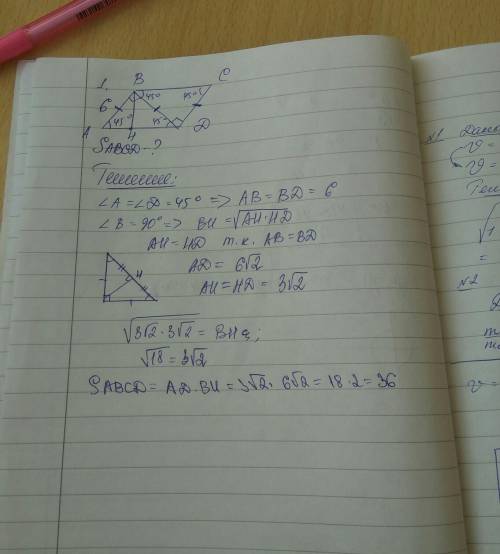 1. B C
45° 45°
6
A 45° 45° D
H
SABCD-?
Решение:
∠A = ∠D = 45° => AB = BD = 6
∠B = 90° => BH = √AH·HD
AH = HD т.к. AB = BD
AD = 6√2
H
AH = HD = 3√2
√3√2·3√2 = BH
√18 = 3√2
SABCD = AD·BH = 3√2·6√2 = 18·2 = 36
№1
№2